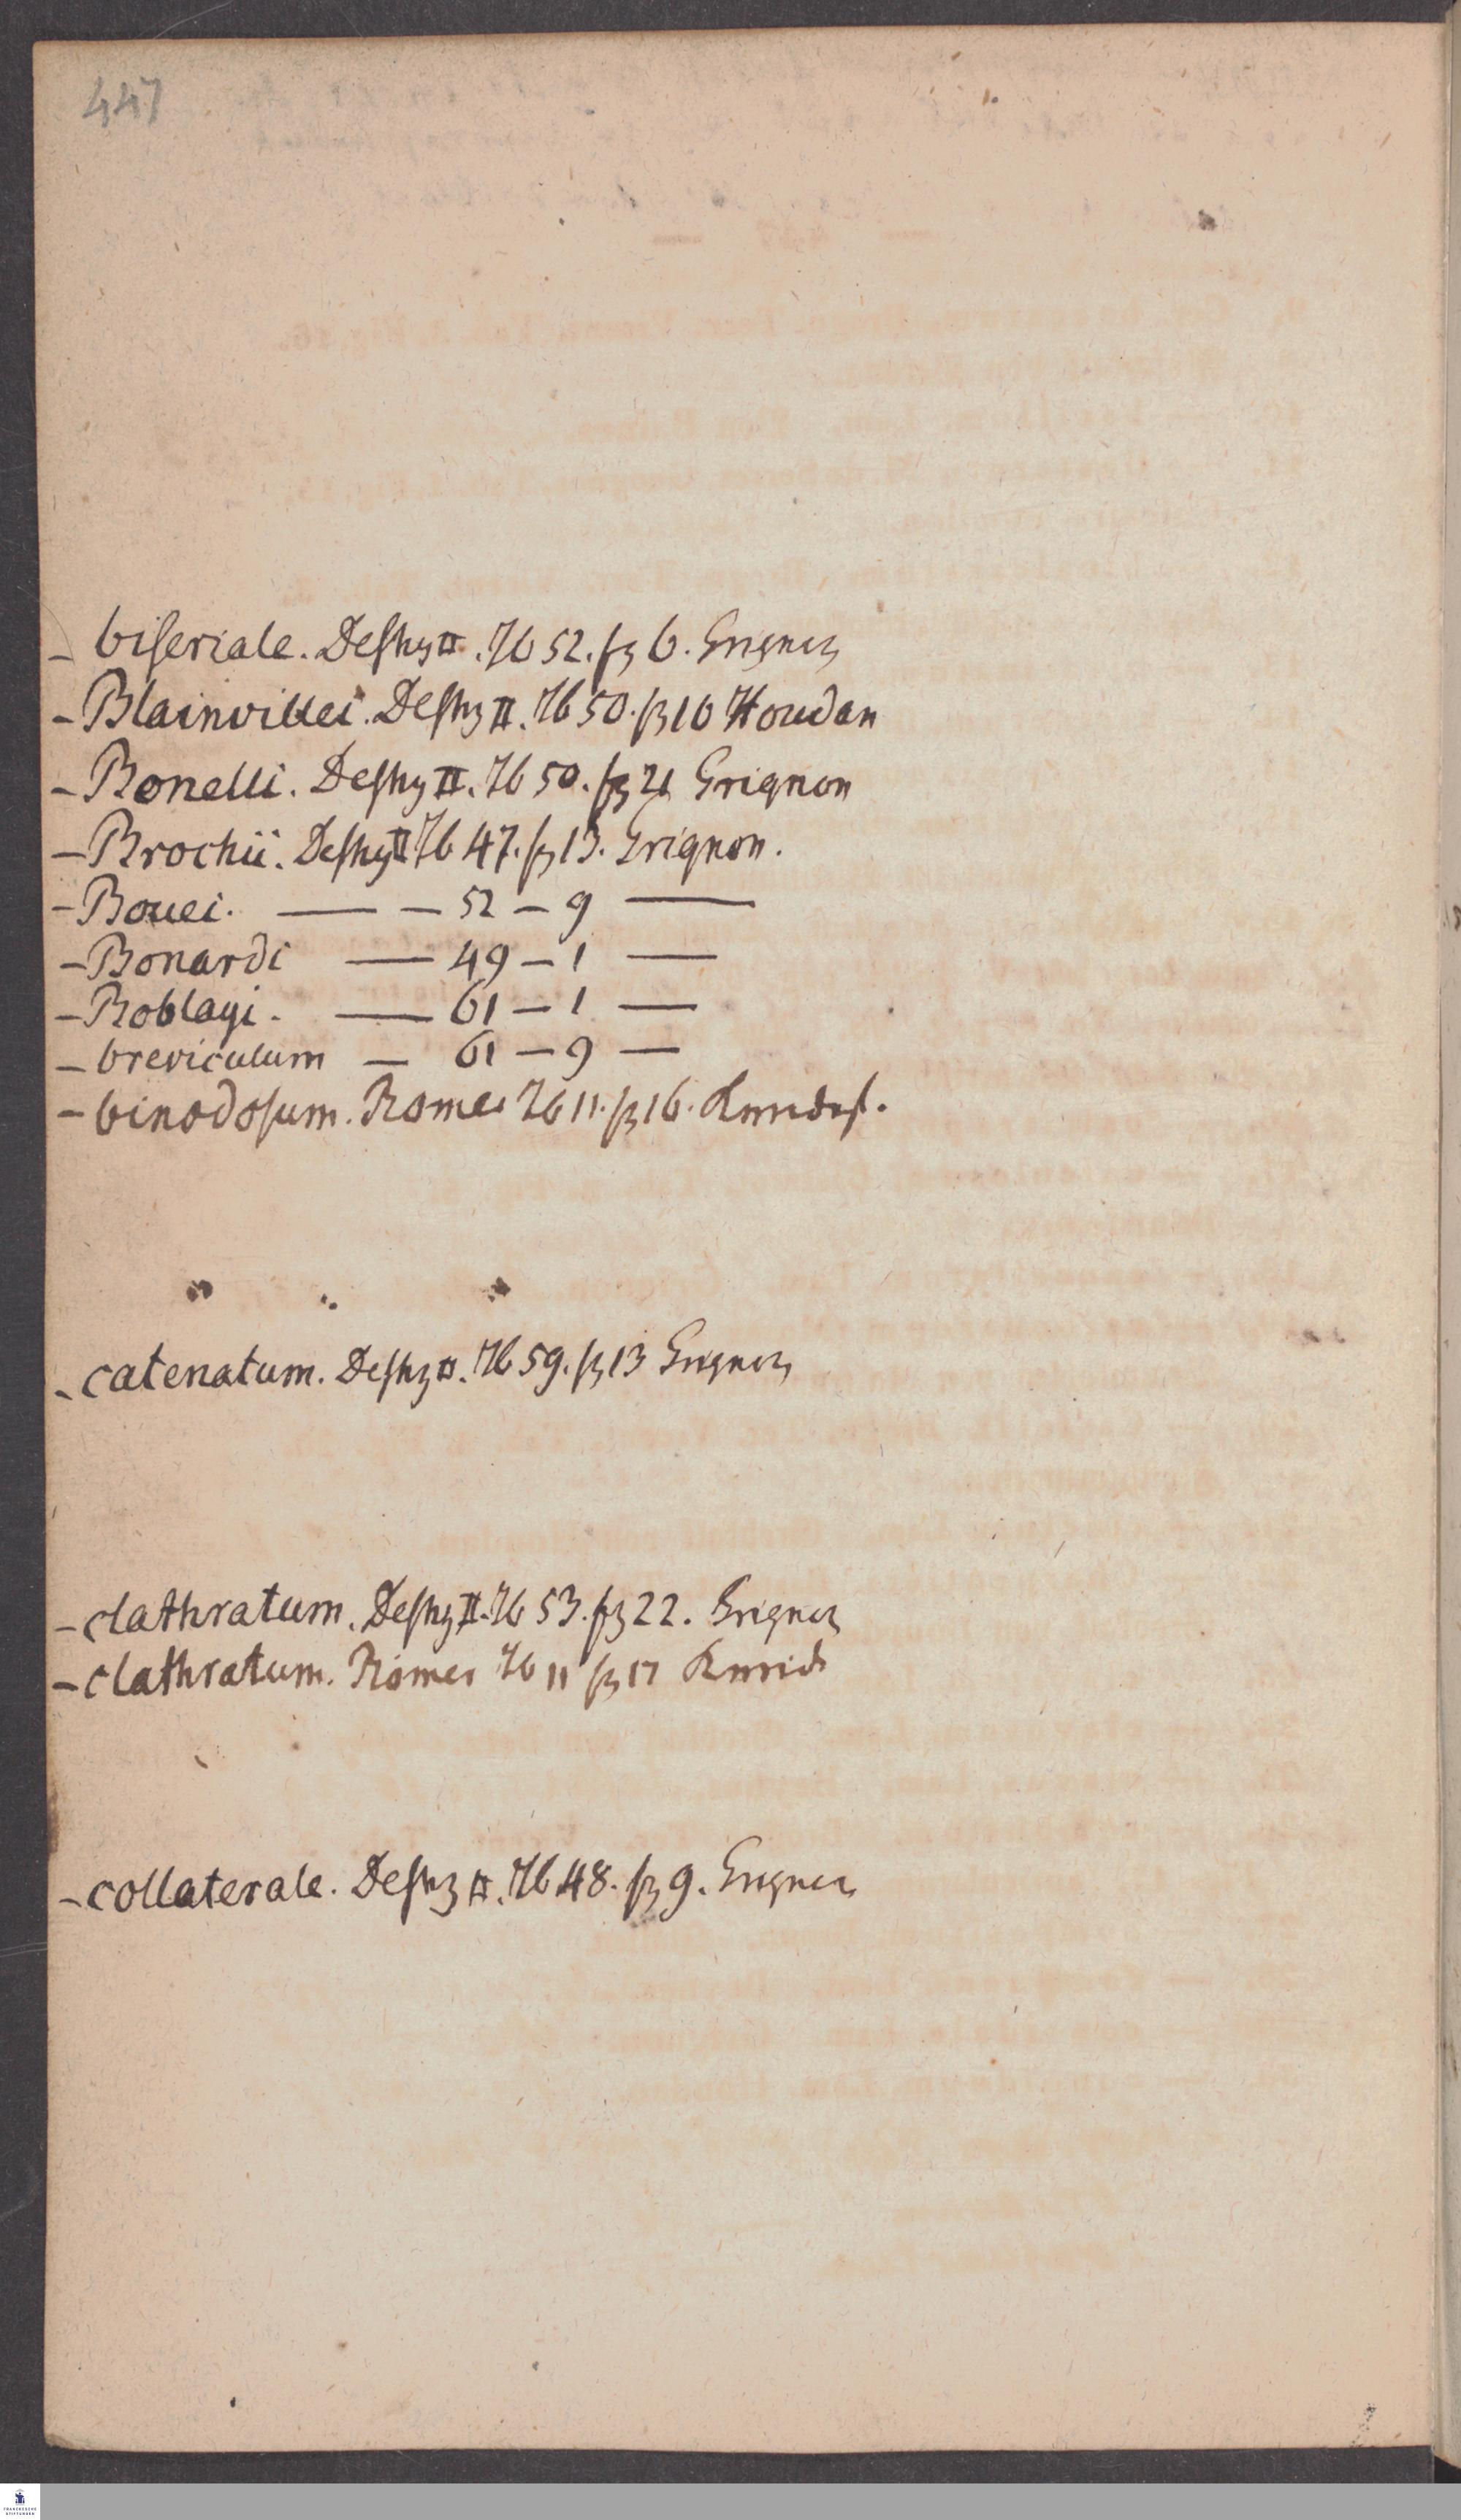 447
- biseriale. Deshy II. Tb 52. fg 6. Grignon
- Blainvillei. Deshy II. Tb 50. fg 10 Houdan
- Bonelli. Deshy II. Tb 50. fg 21 Grignon
- Brochii. Deshy II Tb 47. fg 13. Grignon.
- Bouei. — — 52 — 9 —
- Bonardi — 49 — 1 —
- Boblayi. — 61 — 1 —
- breviculum — 61 — 9 —
- binodosum. Römer Tb 11. fg 16.
- catenatum. Deshy II. Tb 59. fg 13 Grignon
- clathratum. Deshy II. Tb 53. fg 22. Grignon
- clathratum. Römer Tb 11 fg 17
- collaterale. Deshy II. Tb 48. fg 9. Grignon
FRANCKESCHE
STIFTUNGEN